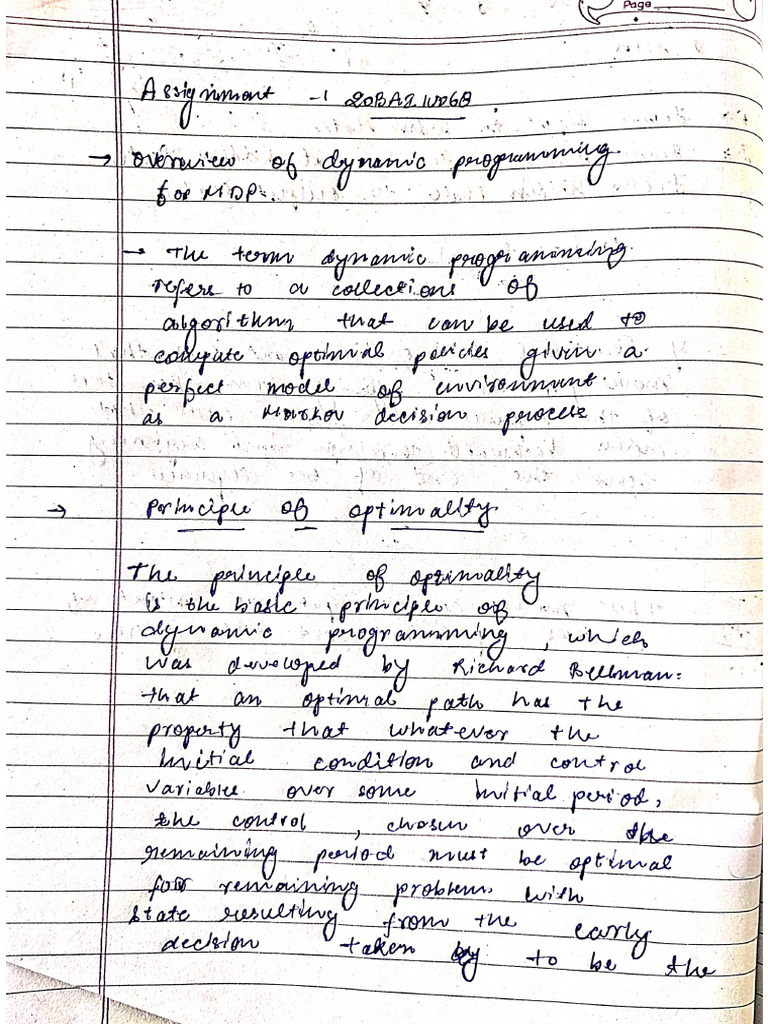 Page
Assignment -1 20BAI10068
→ Overview of dynamic programming
for MDP.
→ The term dynamic programming
refers to a collections of
algorithm, that can be used to
compute optimal policies given a
perfect model of environment
as a Markov decision process.
→ Principle of optimality
The principle of optimality
is the basic principle of
dynamic programming, which
was developed by Richard Bellman:
that an optimal path has the
property that whatever the
initial condition and control
variables over some initial period,
the control, chosen over the
remaining period must be optimal
for remaining problem, with
state resulting from the early
decision taken by to be the